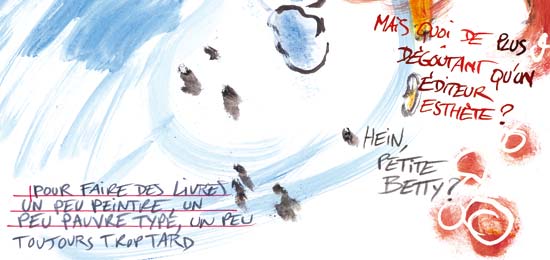 MAIS QUOI DE PLUS
DÉGOÛTANT QU'UN
ÉDITEUR
ESTHÈTE ?
HEIN,
PETITE
BETTY ?
POUR FAIRE DES LIVRES
UN PEU PEINTRE, UN
PEU PAUVRE TYPE, UN PEU
TOUJOURS TROP TARD